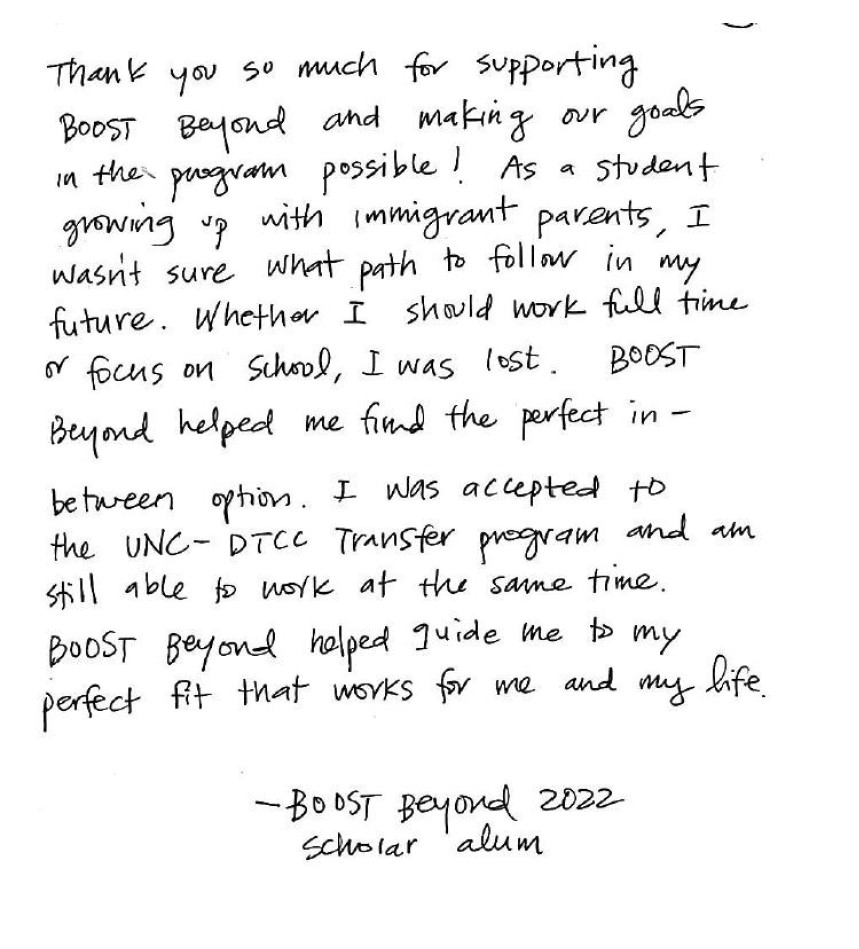 Thank you so much for supporting
BOOST Beyond and making our goals
in the program possible! As a student
growing up with immigrant parents, I
wasn't sure what path to follow in my
future. Whether I should work full time
or focus on school, I was lost. BOOST
Beyond helped me find the perfect in-
between option. I was accepted to
the UNC-DTCC Transfer program and am
still able to work at the same time.
BOOST Beyond helped guide me to my
perfect fit that works for me and my life.
-BOOST Beyond 2022
scholar alum